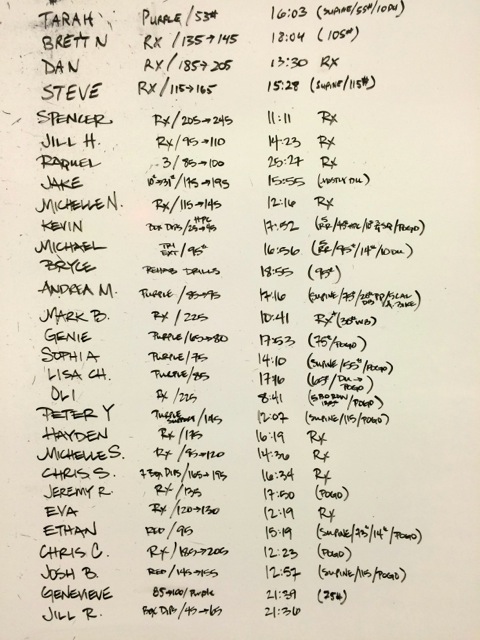 TARAH PURPLE/53# 16:03 (SUPINE/55#/10DU)
BRETT N RX/135→145 18:04 (105#)
DAN RX/185→205 13:30 RX
STEVE RX/115→165 15:28 (SUPINE/115#)
SPENCER RX/205→245 11:11 RX
JILL H. RX/95→110 14:23 RX
RAQUEL 3/85→100 25:27 RX
JAKE /175→195 15:55 (MOSTLY DU)
MICHELLE N. RX/115→145 12:16 RX
KEVIN BOX DIPS/25→45 17:52
MICHAEL TRI EXT/95# 16:56
BRYCE REHAB DRILLS 18:55 (95#)
ANDREA M. PURPLE/85→95 17:16
MARK B. RX/225 10:41 RX
GENIE PURPLE/65→80 17:53 (75#/POGO)
SOPHIA PURPLE/75 14:10 (SUPINE/55#/POGO)
LISA CH. PURPLE/85 (65#/DU→POGO)
OLI RX/225 8:41
PETER Y PURPLE /145 12:07 (SUPINE/115/POGO)
HAYDEN RX/175 16:19 RX
MICHELLE S. RX/95→120 14:36 RX
CHRIS S. 7 BOX DIPS/165→195 16:34 RX
JEREMY R. RX/135 17:50 (POGO)
EVA RX/120→130 12:19 RX
ETHAN RED/95 15:19 (SUPINE/75#/14"/POGO)
CHRIS C. RX/185→205 12:23 (POGO)
JOSH B. RED/145→155 12:57 (SUPINE/115/POGO)
GENEVIEVE 85→100/PURPLE 21:39
JILL R. BOX DIPS/45→65 21:36